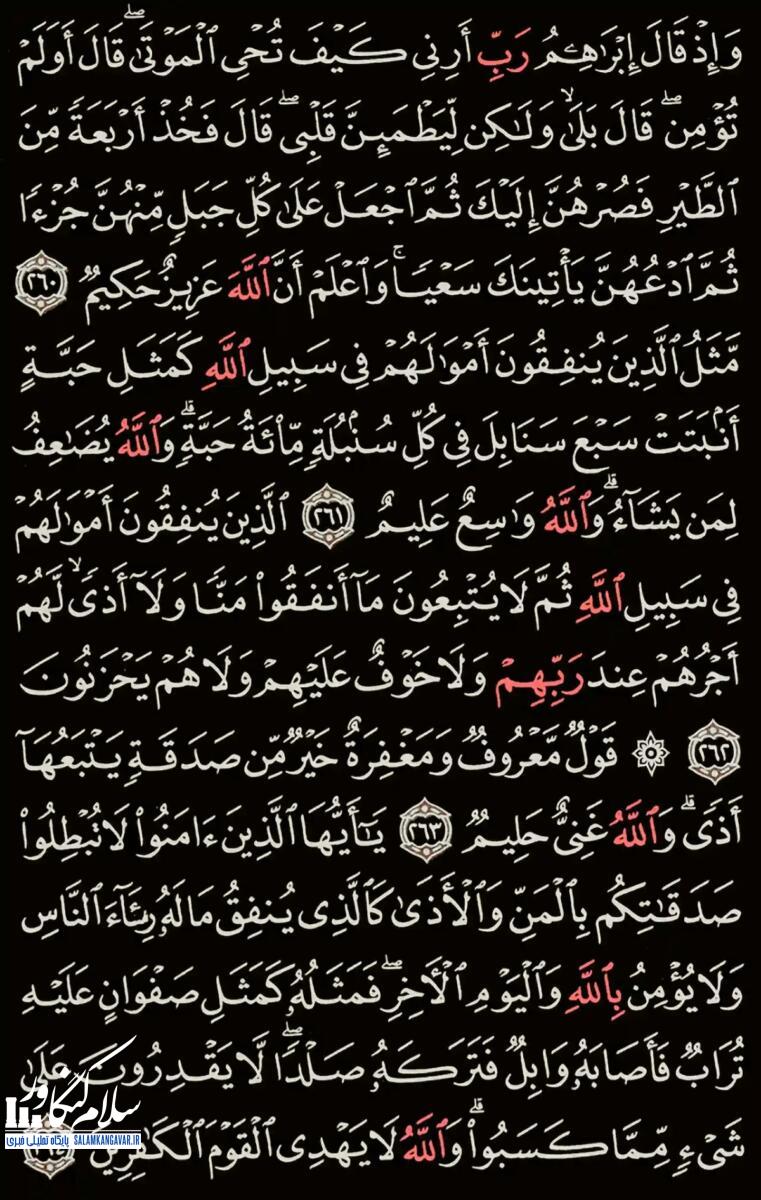 وَإِذْ قَالَ إِبْرَٰهِـۧمُ رَبِّ أَرِنِي كَيْفَ تُحْيِ ٱلْمَوْتَىٰۖ قَالَ أَوَلَمْ
تُؤْمِنۖ قَالَ بَلَىٰۙ وَلَٰكِن لِّيَطْمَئِنَّ قَلْبِيۖ قَالَ فَخُذْ أَرْبَعَةً مِّنَ
ٱلطَّيْرِ فَصُرْهُنَّ إِلَيْكَ ثُمَّ ٱجْعَلْ عَلَىٰ كُلِّ جَبَلٍ مِّنْهُنَّ جُزْءًا
ثُمَّ ٱدْعُهُنَّ يَأْتِينَكَ سَعْيًاۚ وَٱعْلَمْ أَنَّ ٱللَّهَ عَزِيزٌ حَكِيمٌ ٢٦٠
مَّثَلُ ٱلَّذِينَ يُنفِقُونَ أَمْوَٰلَهُمْ فِي سَبِيلِ ٱللَّهِ كَمَثَلِ حَبَّةٍ
أَنۢبَتَتْ سَبْعَ سَنَابِلَ فِي كُلِّ سُنۢبُلَةٍ مِّا۟ئَةُ حَبَّةٍۗ وَٱللَّهُ يُضَٰعِفُ
لِمَن يَشَآءُۗ وَٱللَّهُ وَٰسِعٌ عَلِيمٌ ٢٦١ ٱلَّذِينَ يُنفِقُونَ أَمْوَٰلَهُمْ
فِي سَبِيلِ ٱللَّهِ ثُمَّ لَا يُتْبِعُونَ مَآ أَنفَقُوا۟ مَنًّا وَلَآ أَذًىۙ لَّهُمْ
أَجْرُهُمْ عِندَ رَبِّهِمْ وَلَا خَوْفٌ عَلَيْهِمْ وَلَا هُمْ يَحْزَنُونَ
٢٦٢ ۞ قَوْلٌ مَّعْرُوفٌ وَمَغْفِرَةٌ خَيْرٌ مِّن صَدَقَةٍ يَتْبَعُهَآ
أَذًىۗ وَٱللَّهُ غَنِيٌّ حَلِيمٌ ٢٦٣ يَٰٓأَيُّهَا ٱلَّذِينَ ءَامَنُوا۟ لَا تُبْطِلُوا۟
صَدَقَٰتِكُم بِٱلْمَنِّ وَٱلْأَذَىٰ كَٱلَّذِي يُنفِقُ مَالَهُۥ رِئَآءَ ٱلنَّاسِ
وَلَا يُؤْمِنُ بِٱللَّهِ وَٱلْيَوْمِ ٱلْأَخِرِۖ فَمَثَلُهُۥ كَمَثَلِ صَفْوَانٍ عَلَيْهِ
تُرَابٌ فَأَصَابَهُۥ وَابِلٌ فَتَرَكَهُۥ صَلْدًاۖ لَّا يَقْدِرُونَ عَلَىٰ
شَيْءٍ مِّمَّا كَسَبُوا۟ۗ وَٱللَّهُ لَا يَهْدِي ٱلْقَوْمَ ٱلْكَٰفِرِينَ ٢٦٤
سلام کنگاور
پایگاه تحلیلی خبری SALAMKANGAVAR.IR